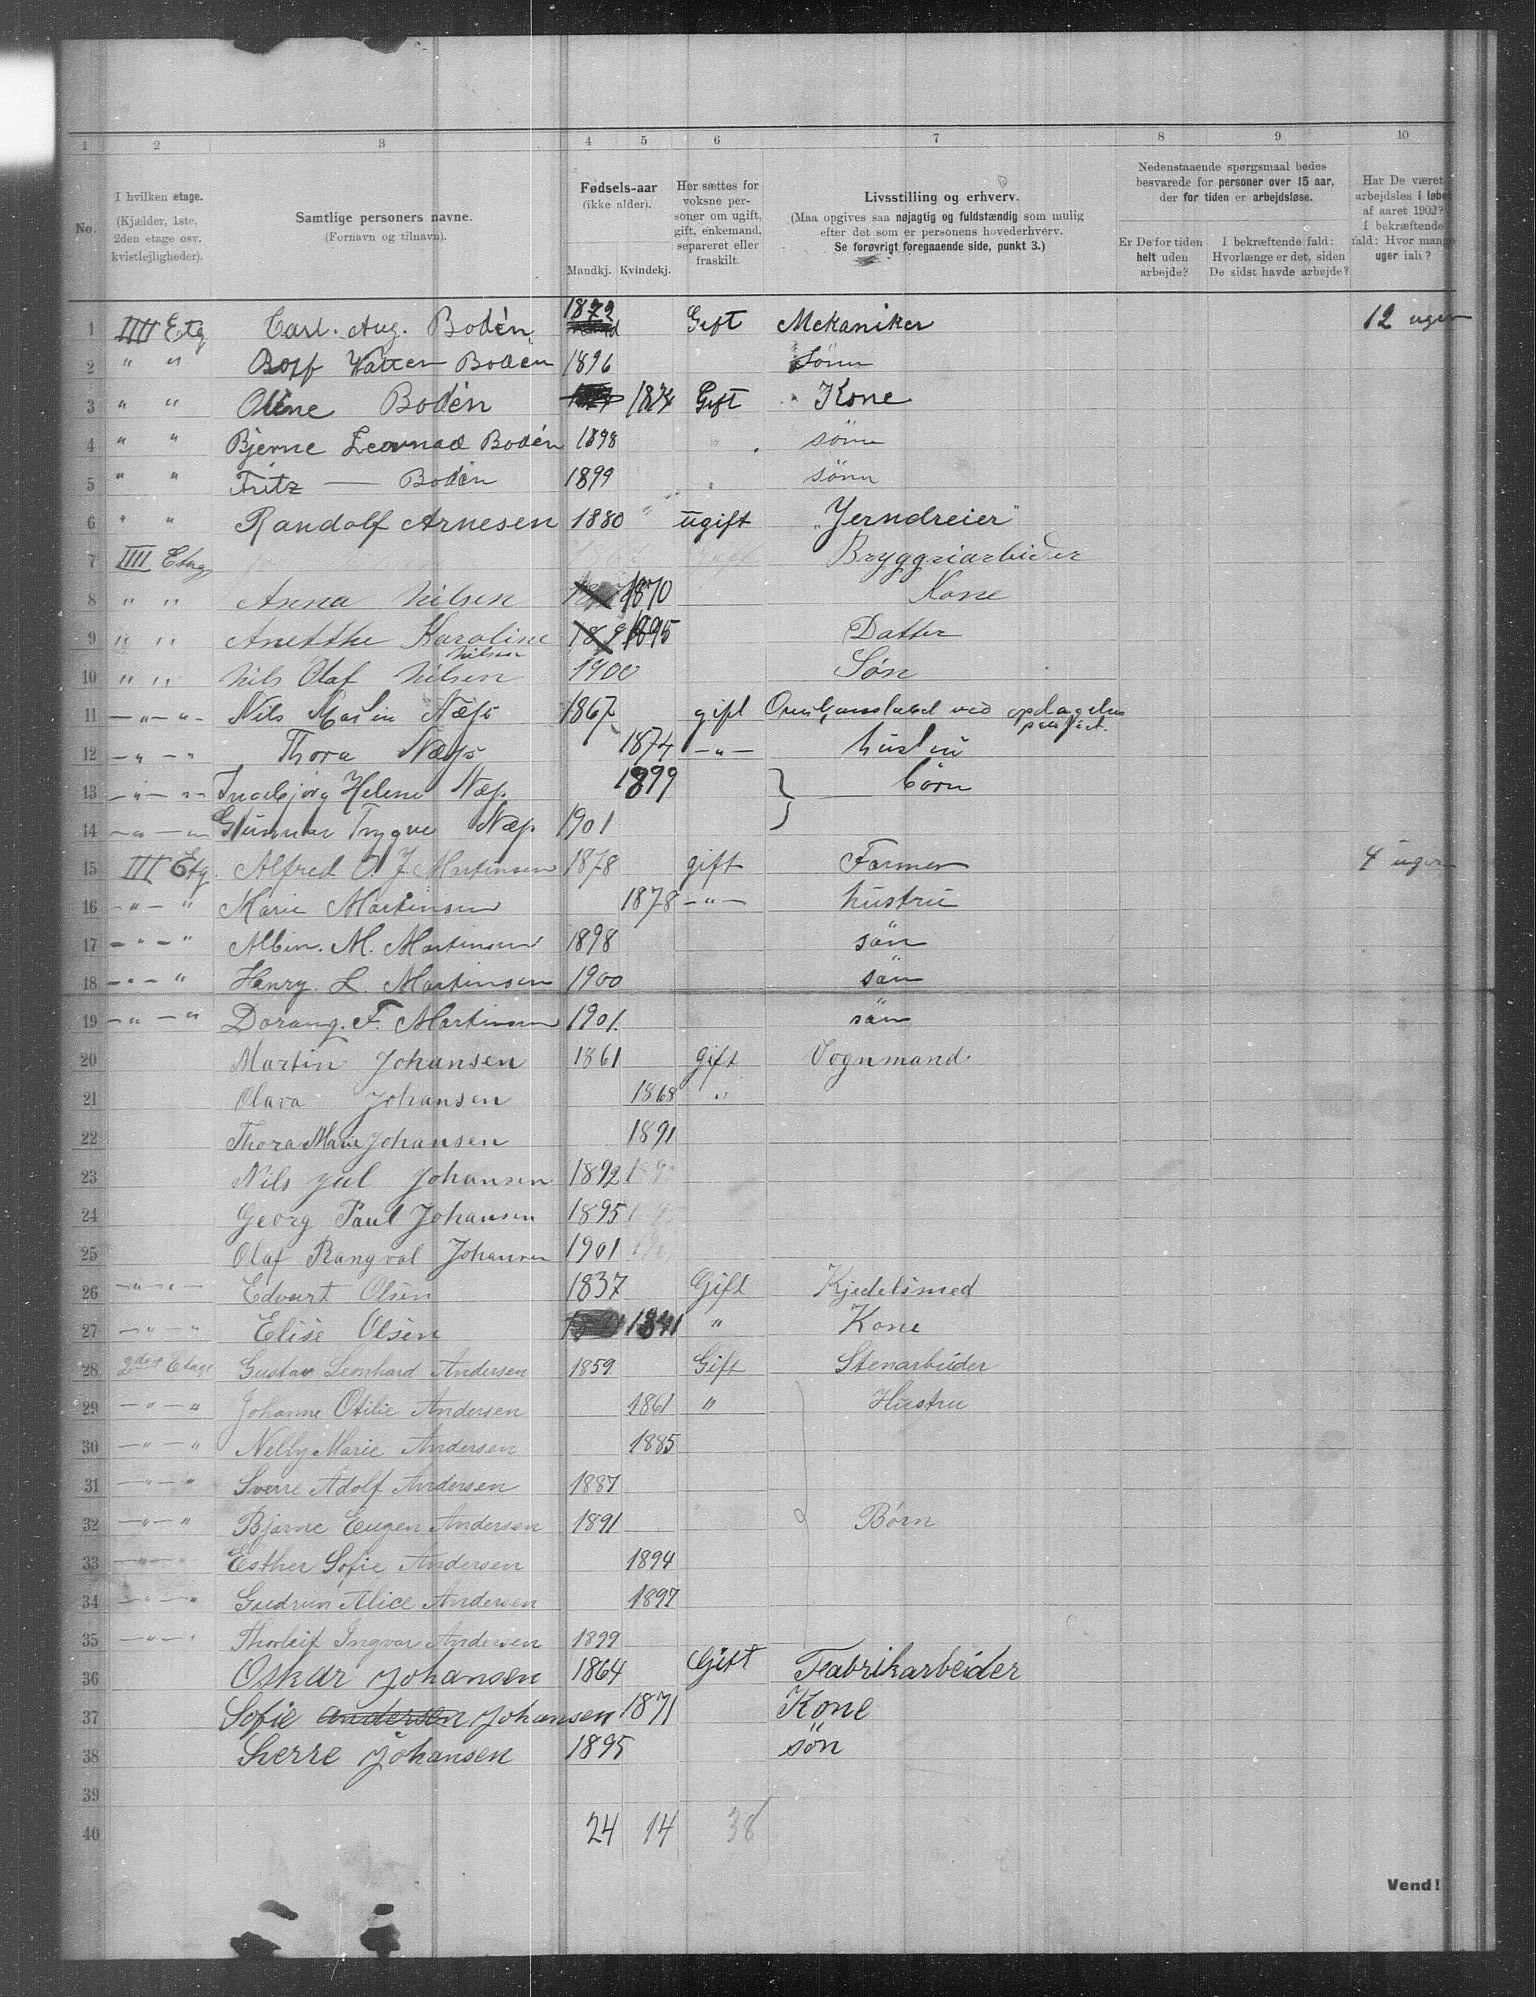 1 2 3 4 5 6 7 8 9 10
No.
I hvilken etage.
(Kjælder, 1ste,
2den etage osv.
kvistlejligheder).
Samtlige personers navne.
(Fornavn og tilnavn).
Fødsels-aar
(ikke alder).
Mandkj. Kvindekj.
Her sættes for
voksne per-
soner om ugift,
gift, enkemand,
separeret eller
fraskilt.
Livsstilling og erhverv.
(Maa opgives saa nøjagtig og fuldstændig som mulig
efter det som er personens hovederhverv.
Se forøvrigt foregaaende side, punkt 3.)
Nedenstaaende spørgsmaal bedes
besvarede for personer over 15 aar,
der for tiden er arbejdsløse.
Er De for tiden
helt uden
arbejde?
I bekræftende fald:
Hvorlænge er det, siden
De sidst havde arbejde?
Har De været
arbejdsløs i løbet
af aaret 1902?
I bekræftende
fald: Hvor mange
uger ialt?
1 IIII Etg Carl. Aug. Bodén 1872 Gift Mekaniker 12 uger
2 " " Walter Bodén 1896 Sönn
3 " " Oline Bodén 1874 Gift Kone
4 " " Bjerne Leornad Bodén 1898 sönn
5 " " Fritz — Bodén 1899 sönn
6 " " Randolf Arnesen 1880 ugift "Jerndreier"
7 IIII Etag Bryggriarbider
8 " " Anna Nilsen 1870 Kone
9 " " Anetthe Karoline Nilsen 1895 Datter
10 " " Nils Olaf Nilsen 1900 Søn
11 — " — " — Nils Næss 1867 gift ved
12 — " — " Thora Næss 1874 — " — hustru
13 — " — " — Ingebjørg Helene Næss 1899 } børn
14 — " — " — Gunnar Trygve Næss 1901
15 III Etg. Alfred O J Martinsen 1878 gift Former 4 uger
16 — " — " Marie Martinsen 1878 — " — hustru
17 — " — " Albin. M. Martinsen 1898 sön
18 — " — " Henry. L. Martinsen 1900 sön
19 — " — " Dorang. F. Martinsen 1901. sön
20 Martin Johansen 1861 gift Vognmand
21 Olava Johansen 1868 "
22 Thora Marie Johansen 1891
23 Nils Johansen 1892
24 Georg Paul Johansen 1895
25 Olaf Rangval Johansen 1901
26 — " — " — Edvart Olsen 1837 Gift Kjedelsmed
27 — " — " Elise Olsen 1841 " Kone
28 2den Etage Gustav Leonhard Andersen 1859 Gift Stenarbeider
29 — " — " Johanne Otilie Andersen 1861 " Hustru
30 — " — " Nelly Marie Andersen 1885
31 — " — " Sverre Adolf Andersen 1887
32 — " — " Bjarne Eugen Andersen 1891 Børn
33 — " — " Esther Sofie Andersen 1894
34 — " — " Gudrun Alice Andersen 1897
35 — " — " Thorleif Ingvar Andersen 1899
36 Oskar Johansen 1864 Gift Fabrikarbeider
37 Sofie Andersen Johansen 1871 Kone
38 Sverre Johansen 1895 sön
39
40 24 14 38
Vend!